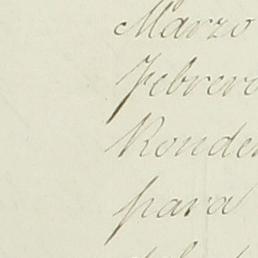 Marzo
Febrero
Ronde
para